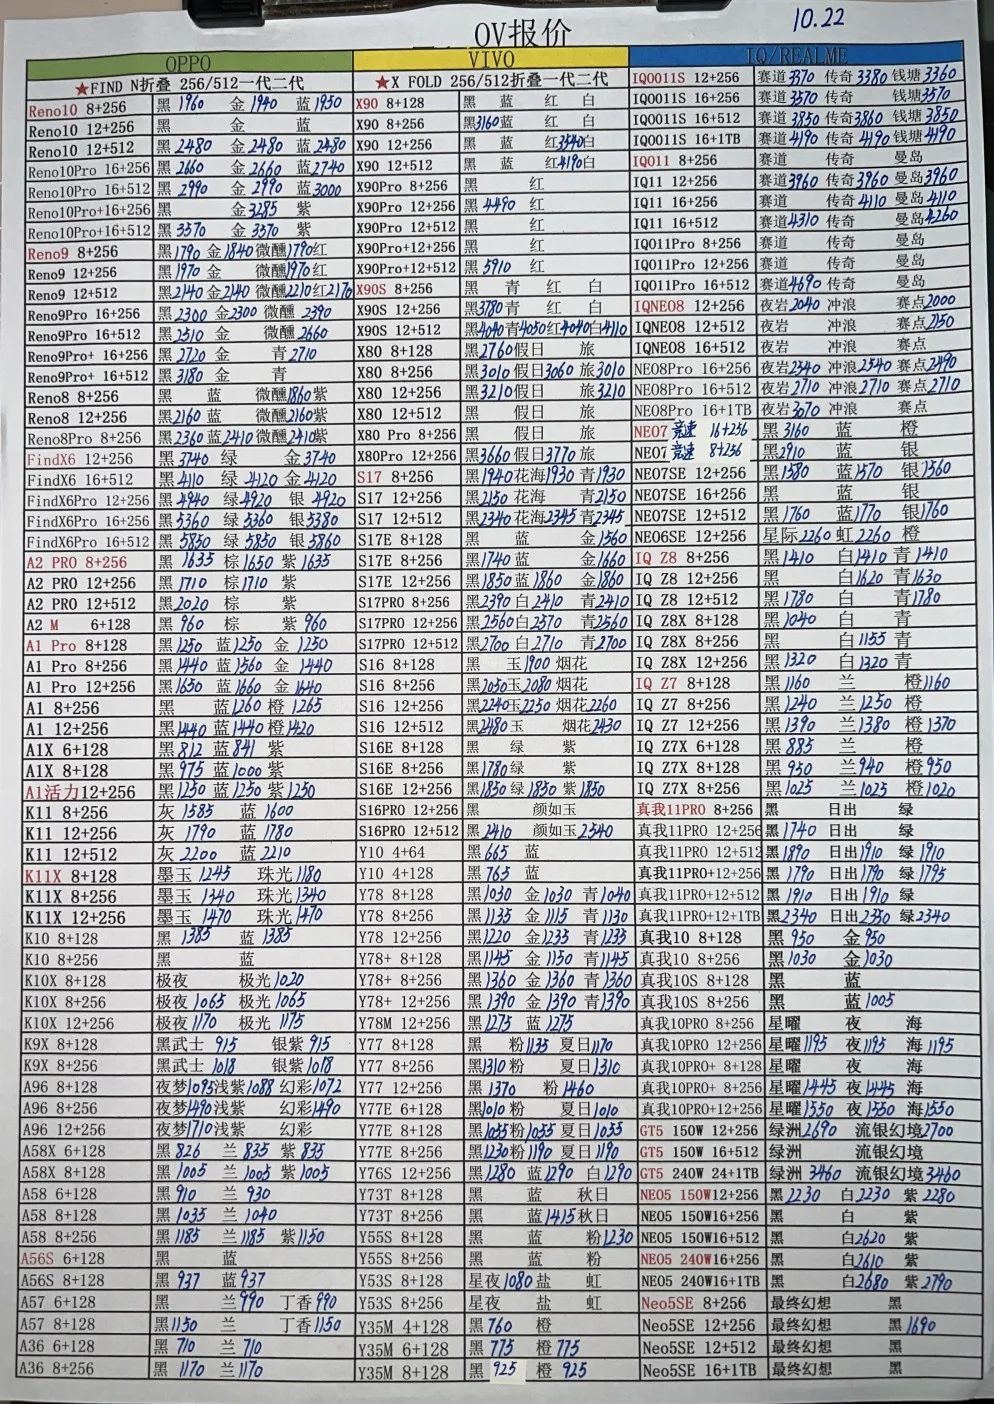 10.22
OV报价
OPPO
★FIND N折叠 256/512一代二代
Reno10 8+256 黑1960 金1940 蓝1950
Reno10 12+256 黑 金 蓝
Reno10 12+512 黑2480 金2480 蓝2480
Reno10Pro 16+256 黑2660 金2660 蓝2740
Reno10Pro 16+512 黑2990 金2990 蓝3000
Reno10Pro+16+256 黑 金3285 紫
Reno10Pro+16+512 黑3570 金3570 紫
Reno9 8+256 黑1790 金1840 微醺1790 红
Reno9 12+256 黑1970 金 微醺1970 红
Reno9 12+512 黑2140 金2140 微醺2210 红2170
Reno9Pro 16+256 黑2300 金2300 微醺2390
Reno9Pro 16+512 黑2510 金 微醺2660
Reno9Pro+ 16+256 黑2720 金 青2710
Reno9Pro+ 16+512 黑3180 金 青
Reno8 8+256 黑 蓝 微醺1860 紫
Reno8 12+256 黑2160 蓝 微醺2160 紫
Reno8Pro 8+256 黑2360 蓝2410 微醺2410 紫
FindX6 12+256 黑3740 绿 金3740
FindX6 16+512 黑4110 绿4120 金4120
FindX6Pro 12+256 黑4940 绿4920 银4920
FindX6Pro 16+256 黑5360 绿5360 银5380
FindX6Pro 16+512 黑5850 绿5850 银5860
A2 PRO 8+256 黑1635 棕1650 紫1635
A2 PRO 12+256 黑1710 棕1710 紫
A2 PRO 12+512 黑2020 棕 紫
A2 M 6+128 黑960 棕 紫960
A1 Pro 8+128 黑1250 蓝1250 金1250
A1 Pro 8+256 黑1440 蓝1560 金1440
A1 Pro 12+256 黑1650 蓝1660 金1640
A1 8+256 黑 蓝1260 橙1265
A1 12+256 黑1440 蓝1440 橙1420
A1X 6+128 黑812 蓝841 紫
A1X 8+128 黑975 蓝1000 紫
A1活力12+256 黑1250 蓝1250 紫1250
K11 8+256 灰1585 蓝1600
K11 12+256 灰1790 蓝1780
K11 12+512 灰2200 蓝2210
K11X 8+128 墨玉1245 珠光1180
K11X 8+256 墨玉1340 珠光1340
K11X 12+256 墨玉1470 珠光1470
K10 8+128 黑1385 蓝1385
K10 8+256 黑 蓝
K10X 8+128 极夜 极光1020
K10X 8+256 极夜1065 极光1065
K10X 12+256 极夜1170 极光1175
K9X 8+128 黑武士915 银紫915
K9X 8+256 黑武士1018 银紫1018
A96 8+128 夜梦1095 浅紫1088 幻彩1072
A96 8+256 夜梦1490 浅紫 幻彩1490
A96 12+256 夜梦1710 浅紫 幻彩
A58X 6+128 黑826 兰835 紫835
A58X 8+128 黑1005 兰1005 紫1005
A58 6+128 黑910 兰930
A58 8+128 黑1035 兰1040
A58 8+256 黑1185 兰1185 紫1150
A56S 6+128 黑 蓝
A56S 8+128 黑937 蓝937
A57 6+128 黑 兰990 丁香990
A57 8+128 黑1150 兰 丁香1150
A36 6+128 黑710 兰710
A36 8+256 黑1170 兰1170
VIVO
★X FOLD 256/512折叠一代二代
X90 8+128 黑 蓝 红 白
X90 8+256 黑3160 蓝 红 白
X90 12+256 黑 蓝 红3540 白
X90 12+512 黑 蓝 红4190 白
X90Pro 8+256 黑 红
X90Pro 12+256 黑4490 红
X90Pro 12+512 黑 红
X90Pro+12+256 黑 红
X90Pro+12+512 黑5910 红
X90S 8+256 黑 青 红 白
X90S 12+256 黑3780 青 红 白
X90S 12+512 黑4040 青4050 红4040 白4110
X80 8+128 黑2760 假日 旅
X80 8+256 黑3010 假日3060 旅3010
X80 12+256 黑3210 假日 旅3210
X80 12+512 黑 假日 旅
X80 Pro 8+256 黑 假日 旅
X80Pro 12+256 黑3660 假日3770 旅
S17 8+256 黑1940 花海1930 青1930
S17 12+256 黑2150 花海 青2150
S17 12+512 黑2340 花海2345 青2345
S17E 8+128 黑 蓝 金1560
S17E 8+256 黑1740 蓝 金1660
S17E 12+256 黑1850 蓝1860 金1860
S17PRO 8+256 黑2390 白2410 青2410
S17PRO 12+256 黑2560 白2570 青2560
S17PRO 12+512 黑2700 白2710 青2700
S16 8+128 黑 玉1900 烟花
S16 8+256 黑2050 玉2080 烟花
S16 12+256 黑2240 玉2250 烟花2260
S16 12+512 黑2480 玉 烟花2430
S16E 8+128 黑 绿 紫
S16E 8+256 黑1780 绿 紫
S16E 12+256 黑1850 绿1850 紫1850
S16PRO 12+256 黑 颜如玉
S16PRO 12+512 黑2410 颜如玉2540
Y10 4+64 黑665 蓝
Y10 4+128 黑765 蓝
Y78 8+128 黑1030 金1030 青1040
Y78 8+256 黑1135 金1115 青1130
Y78 12+256 黑1220 金1235 青1235
Y78+ 8+128 黑1145 金1150 青1145
Y78+ 8+256 黑1360 金1360 青1360
Y78+ 12+256 黑1390 金1390 青1390
Y78M 12+256 黑1275 蓝1275
Y77 8+128 黑 粉1135 夏日1170
Y77 8+256 黑1310 粉 夏日1310
Y77 12+256 黑1370 粉1460
Y77E 6+128 黑1010 粉 夏日1010
Y77E 8+128 黑1055 粉1055 夏日1055
Y77E 8+256 黑1230 粉1190 夏日1190
Y76S 12+256 黑1280 蓝1290 白1290
Y73T 8+128 黑 蓝 秋日
Y73T 8+256 黑 蓝1415 秋日
Y55S 8+128 黑 蓝 粉1230
Y55S 8+256 黑 蓝 粉
Y53S 8+128 星夜1080 盐 虹
Y53S 8+256 星夜 盐 虹
Y35M 4+128 黑760 橙
Y35M 6+128 黑775 橙775
Y35M 8+128 黑925 橙925
IQ/REALME
IQOO11S 12+256 赛道3370 传奇3380 钱塘3360
IQOO11S 16+256 赛道3570 传奇 钱塘3570
IQOO11S 16+512 赛道3850 传奇3860 钱塘3850
IQOO11S 16+1TB 赛道4190 传奇4190 钱塘4190
IQO11 8+256 赛道 传奇 曼岛
IQ11 12+256 赛道3960 传奇3960 曼岛3960
IQ11 16+256 赛道 传奇4110 曼岛4110
IQ11 16+512 赛道4310 传奇 曼岛4260
IQO11Pro 8+256 赛道 传奇 曼岛
IQO11Pro 12+256 赛道 传奇 曼岛
IQO11Pro 16+512 赛道4690 传奇 曼岛
IQNEO8 12+256 夜岩2040 冲浪 赛点2000
IQNEO8 12+512 夜岩 冲浪 赛点2150
IQNEO8 16+512 夜岩 冲浪 赛点
NEO8Pro 16+256 夜岩2540 冲浪2540 赛点2490
NEO8Pro 16+512 夜岩2710 冲浪2710 赛点2710
NEO8Pro 16+1TB 夜岩3070 冲浪 赛点
NEO7 竞速 16+256 黑3160 蓝 橙
NEO7 竞速 8+256 黑2910 蓝 银
NEO7SE 12+256 黑1580 蓝1570 银1560
NEO7SE 16+256 黑 蓝 银
NEO7SE 12+512 黑1760 蓝1770 银1760
NEO6SE 12+256 星际2260 虹2260 橙
IQ Z8 8+256 黑1410 白1410 青1410
IQ Z8 12+256 黑 白1620 青1630
IQ Z8 12+512 黑1780 白 青1780
IQ Z8X 8+128 黑1040 白 青
IQ Z8X 8+256 黑 白1155 青
IQ Z8X 12+256 黑1320 白1320 青
IQ Z7 8+128 黑1160 兰 橙1160
IQ Z7 8+256 黑1240 兰1250 橙
IQ Z7 12+256 黑1390 兰1380 橙1370
IQ Z7X 6+128 黑885 兰 橙
IQ Z7X 8+128 黑950 兰940 橙950
IQ Z7X 8+256 黑1025 兰1025 橙1020
真我11PRO 8+256 黑 日出 绿
真我11PRO 12+256 黑1740 日出 绿
真我11PRO 12+512 黑1890 日出1910 绿1910
真我11PRO+12+256 黑1790 日出1790 绿1795
真我11PRO+12+512 黑1910 日出1910 绿
真我11PRO+12+1TB 黑2340 日出2350 绿2340
真我10 8+128 黑950 金950
真我10 8+256 黑1030 金1030
真我10S 8+128 黑 蓝
真我10S 8+256 黑 蓝1005
真我10PRO 8+256 星曜 夜 海
真我10PRO 12+256 星曜1195 夜1195 海1195
真我10PRO+ 8+128 星曜 夜 海
真我10PRO+ 8+256 星曜1445 夜1445 海
真我10PRO+12+256 星曜1550 夜1550 海1550
GT5 150W 12+256 绿洲2690 流银幻境2700
GT5 150W 16+512 绿洲 流银幻境
GT5 240W 24+1TB 绿洲3460 流银幻境3460
NEO5 150W12+256 黑2230 白2230 紫2280
NEO5 150W16+256 黑 白 紫
NEO5 150W16+512 黑 白2620 紫
NEO5 240W16+256 黑 白2610 紫
NEO5 240W16+1TB 黑 白2680 紫2790
Neo5SE 8+256 最终幻想 黑
Neo5SE 12+256 最终幻想 黑1690
Neo5SE 12+512 最终幻想 黑
Neo5SE 16+1TB 最终幻想 黑